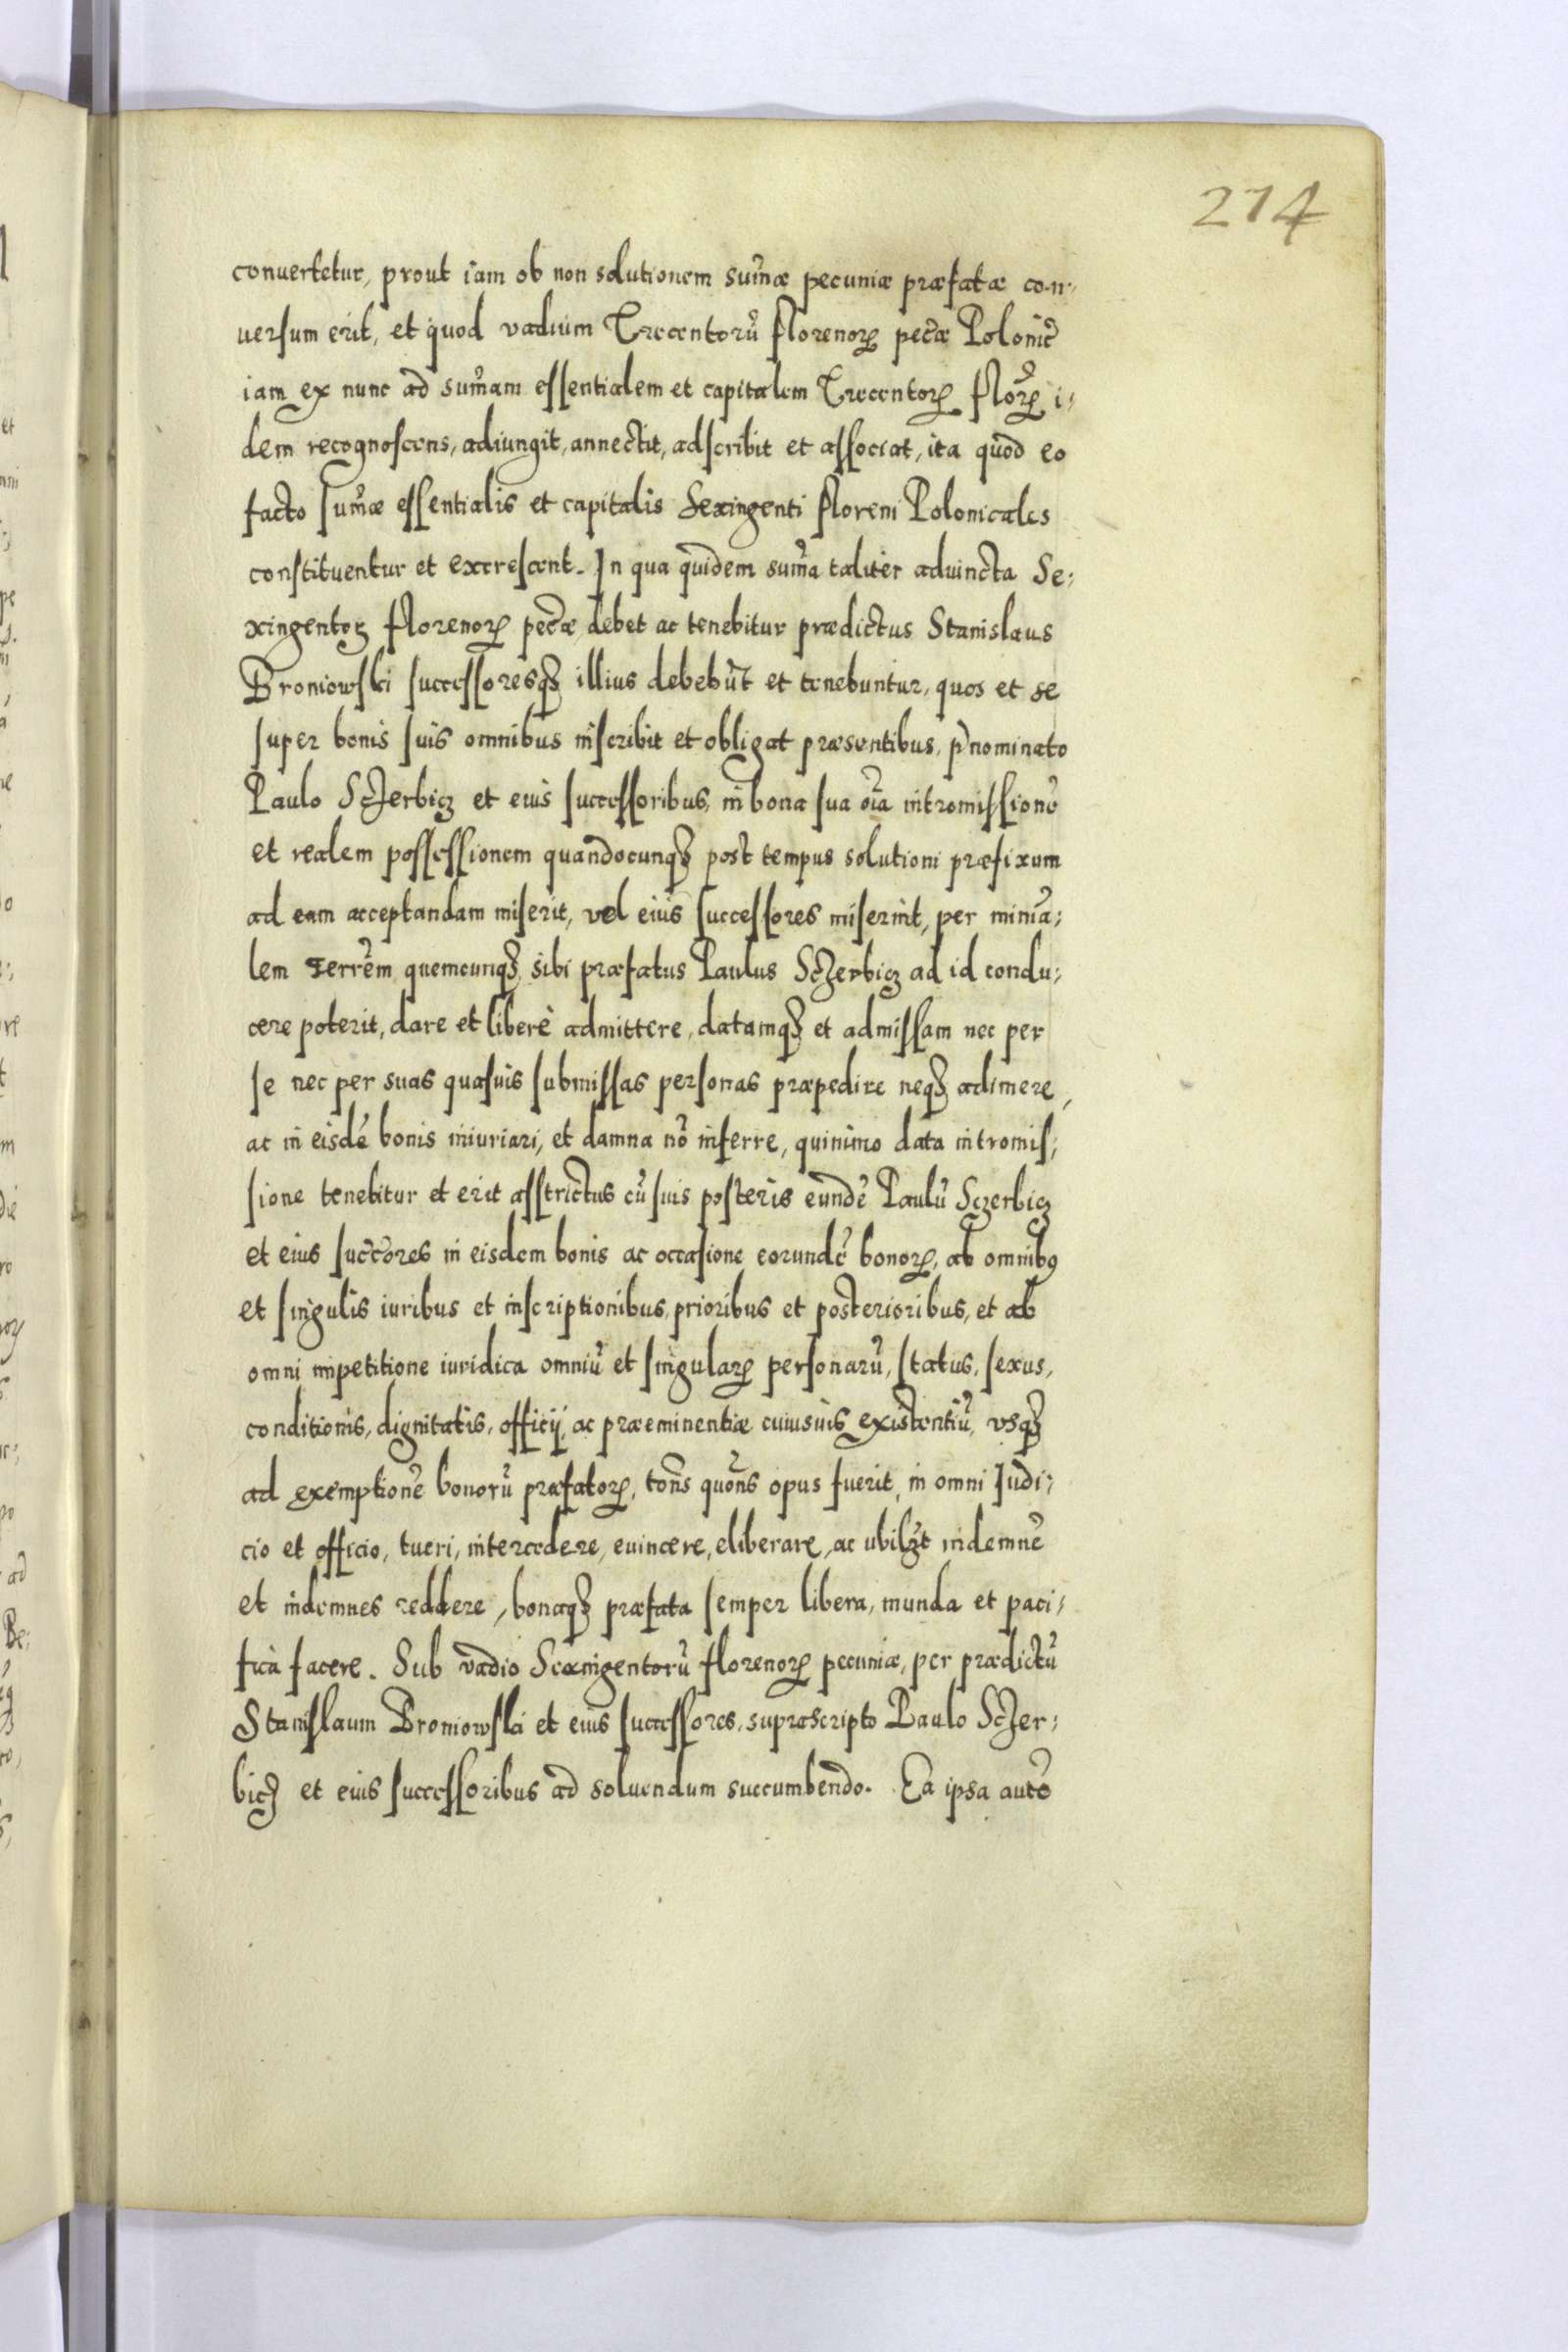 274
conuertetur, prout iam ob non solutionem sum̃æ pecuniæ præfatæ con-
uersum erit, et quod vadium Trecentorũ florenorꝝ pec̃æ Polonic̃
iam ex nunc ad sum̃am essentialem et capitalem Trecentorꝝ florꝝ i-
dem recognoscens, adiungit, annectit, adscribit et associat, ita quod eo
facto sum̃æ essentialis et capitalis Sexingenti floreni Polonicales
constituentur et excrescent. In qua quidem sum̃a taliter aduincta Se-
xingentoꝝ florenorꝝ pec̃æ debet ac tenebitur prædictus Stanislaus
Broniowski successoresqꝫ illius debebũt et tenebuntur, quos et se
super bonis suis omnibus inscribit et obligat præsentibus, p̃nominato
Paulo Sczerbicz et eius successoribus, in bona sua oĩa intromissionẽ
et realem possessionem quandocunqꝫ post tempus solutioni præfixum
ad eam acceptandam miserit, vel eius successores miserint, per miniã-
lem terrẽm quemcunqꝫ sibi præfatus Paulus Sczerbicz ad id condu-
cere poterit, dare et liberè admittere, datamqꝫ et admissam nec per
se nec per suas quasuis submissas personas præpedire neqꝫ adimere,
ac in eisdẽ bonis iniuriari, et damna nõ inferre, quinimo data intromis-
sione tenebitur et erit asstrictus cũ suis posteris eundẽ Paulũ Sczerbicz
et eius succ̃ores in eisdem bonis ac occasione eorundẽ bonorꝝ, ab omnibꝰ
et singulis iuribus et inscriptionibus, prioribus et posterioribus, et ab
omni impetitione iuridica omniũ et singularꝝ personarũ, status, sexus,
conditionis, dignitatis, officij, ac præeminentiæ cuiusuis existentiũ, vsqꝫ
ad exemptionẽ bonorũ præfatorꝝ, tõns quõns opus fuerit, in omni Judi-
cio et officio, tueri, intercedere, euincere, eliberare, ac ubilꝫt indemnẽ
et indemnes reddere, bonaqꝫ præfata semper libera, munda et paci-
fica facere. Sub vadio Sexingentorũ florenorꝝ pecuniæ, per prædictũ
Stanislaum Broniowski et eius successores, suprascripto Paulo Sczer-
bicz et eius successoribus ad soluendum succumbendo. Ea ipsa autẽ